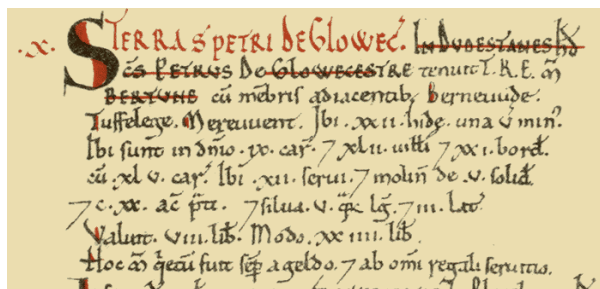 .X. TERRA S PETRI DE GLOWEC̄. IN DVDESTANES HD̄
SC̄S PETRVS DE GLOWECESTRE tenuit T. R. E. m̄
BERTVNE cū mēbris adiacentib; Berneuude.
Tuffelege. Mereuuent. Ibi .xxii. hidę una v̄ min⁹.
Ibi sunt in dn̄io .ix. car̄. 7 xlii. uilłi 7 xxi. bord̄.
cū .xl v. car̄. Ibi .xii. serui. 7 molin̄ de .v. solid̄.
7 c. xx. ac̄ p̄ti. 7 silua .v. qr̄ lḡ. 7 iii. lat̄.
Valuit .viii. lib̄. Modo .xx iiii. lib̄.
Hoc m̄ quietū fuit sēp a geldo. 7 ab om̄i regali seruitio.